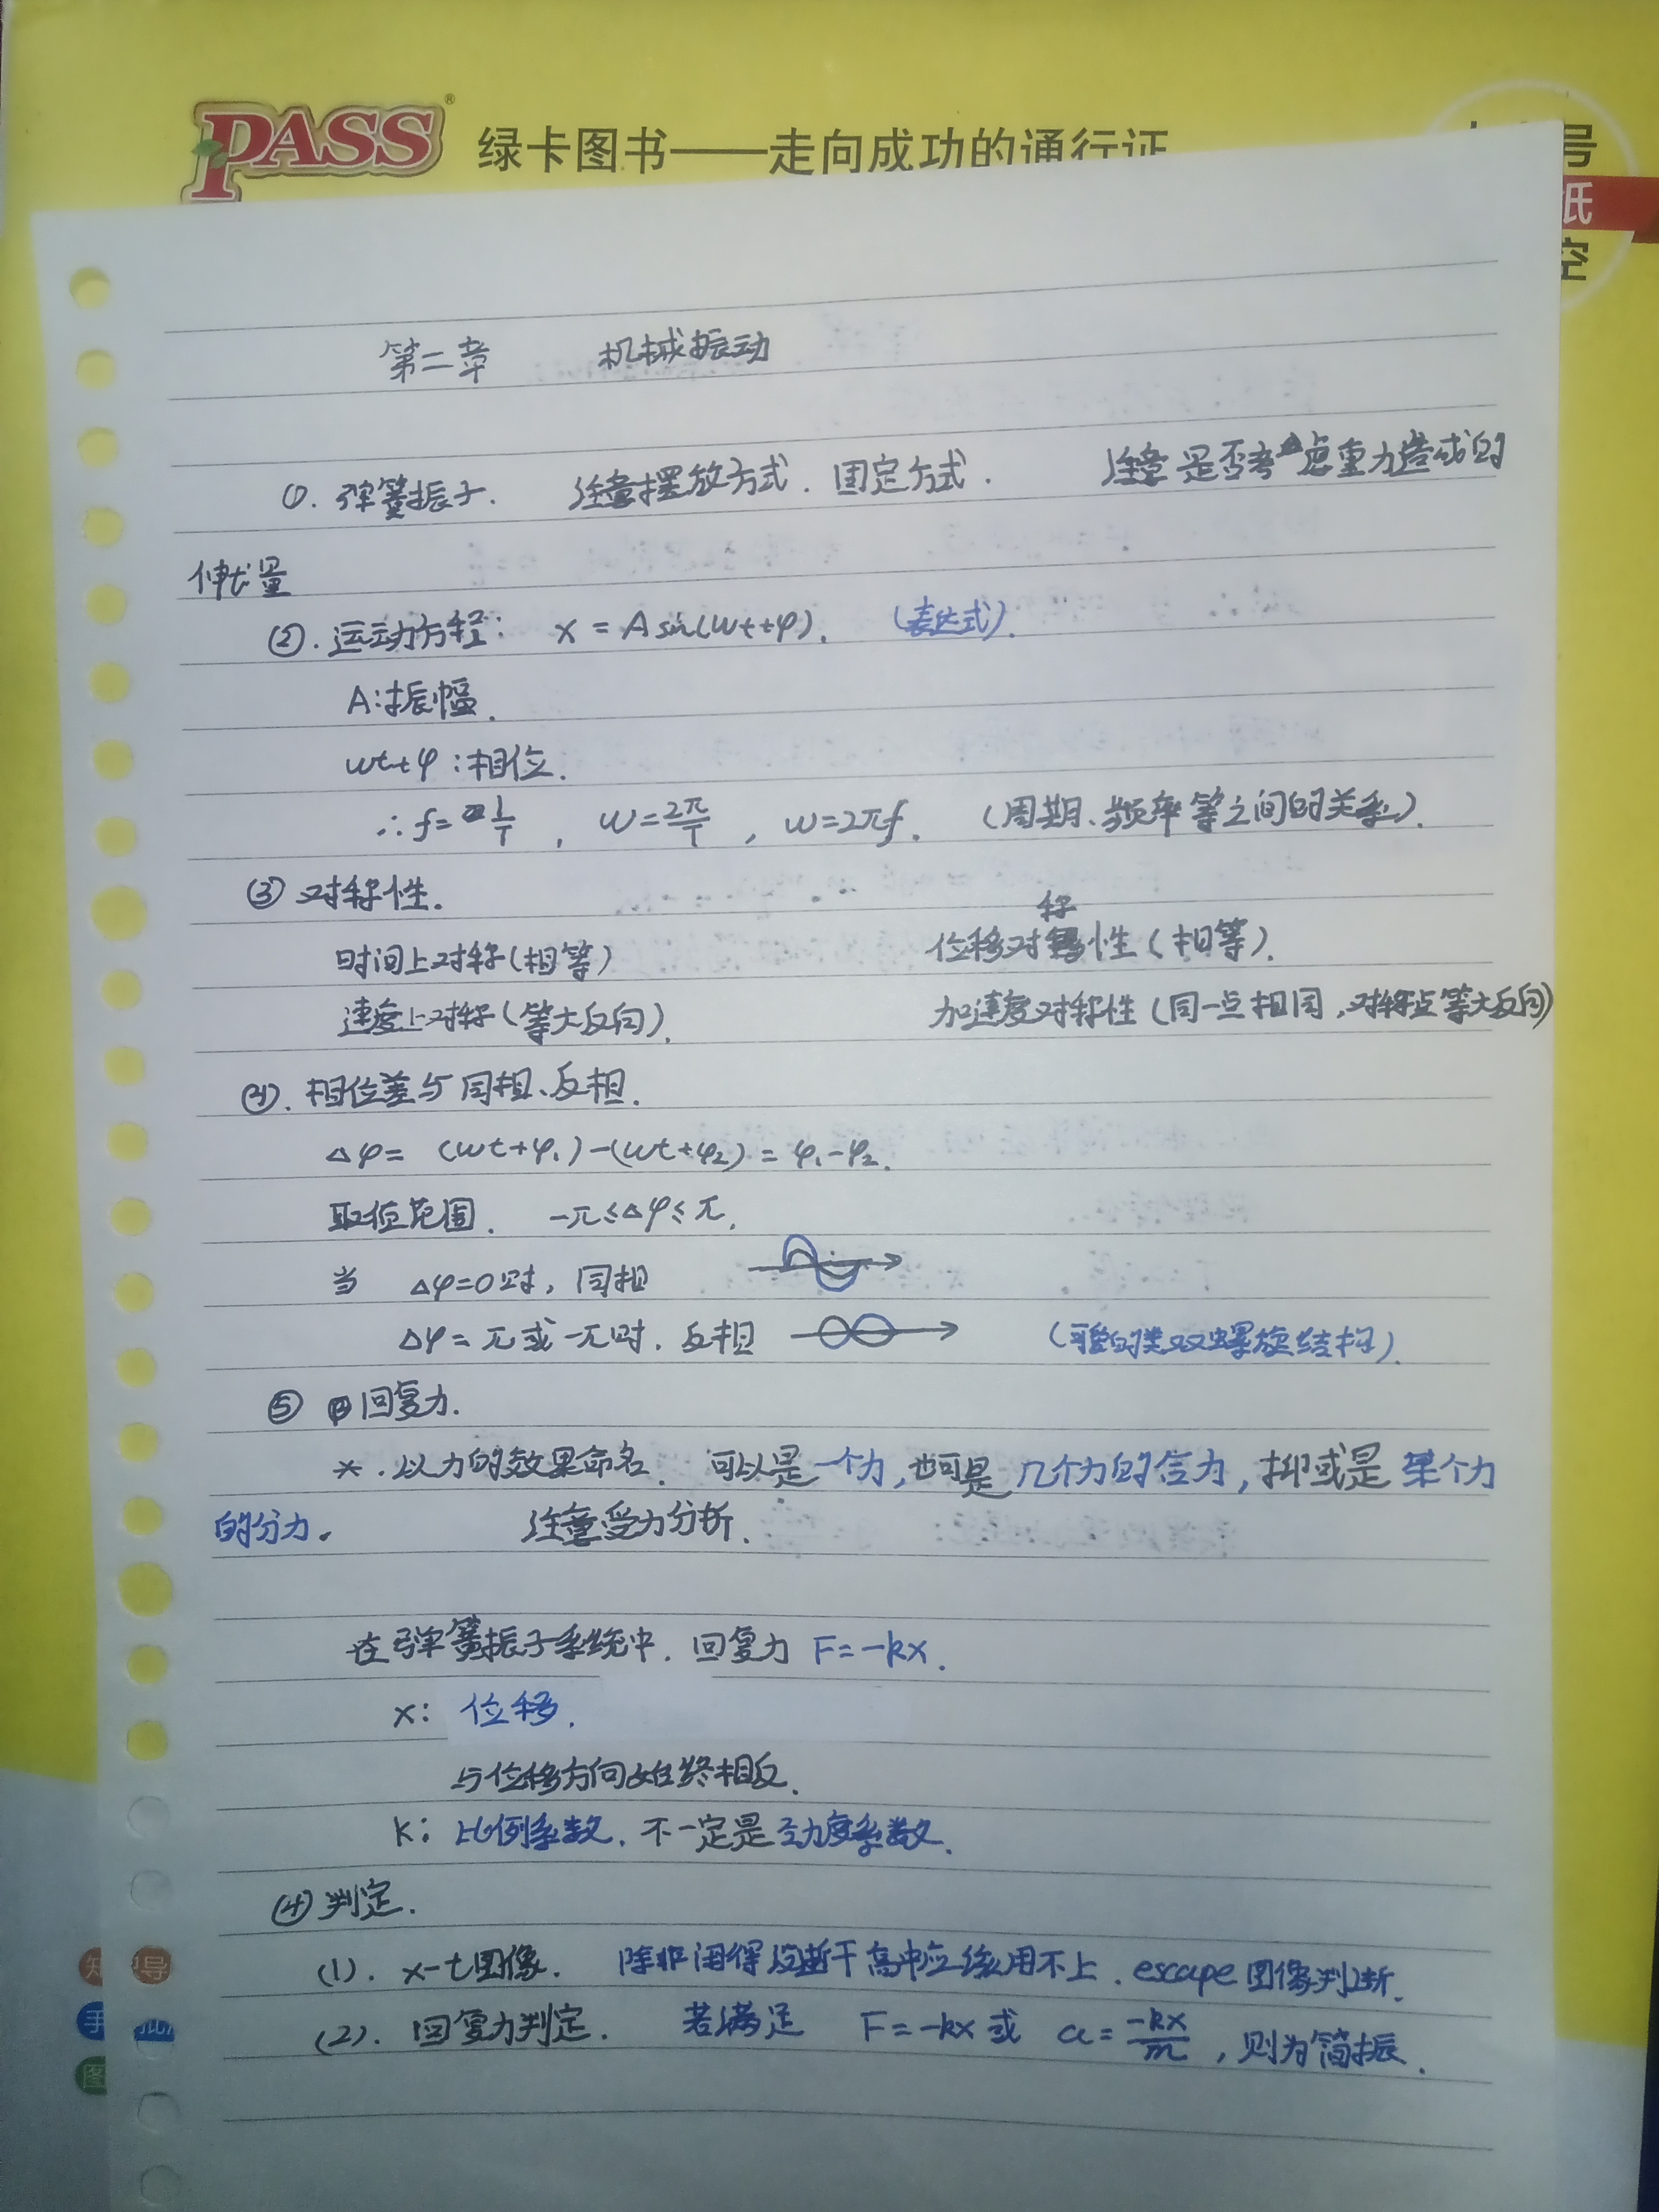 PASS
绿卡图书——走向成功的通行证
号
纸
第二章 机械振动
①. 弹簧振子. 注意摆放方式. 固定方式. 注意是否考虑重力造成的
伸长量
②. 运动方程: x = A sin(wt+φ). (表达式).
A:振幅.
wt+φ:相位.
∴ f=1/T , w=2π/T , w=2πf. (周期、频率等之间的关系).
③ 对称性.
时间上对称(相等) 位移对称性(相等).
速度上对称(等大反向). 加速度对称性(同一点相同,对称点等大反向)
④. 相位差与同相、反相.
Δφ= (wt+φ₁)-(wt+φ₂) = φ₁-φ₂.
取值范围. -π≤Δφ≤π.
当 Δφ=0时, 同相
Δφ=π或-π时. 反相 (可爱的类双螺旋结构).
⑤ 回复力.
*. 以力的效果命名. 可以是一个力,也可是几个力的合力,抑或是某个力
的分力. 注意受力分析.
在弹簧振子系统中. 回复力 F=-kx.
x: 位移.
与位移方向始终相反.
k: 比例系数. 不一定是劲度系数.
④ 判定.
(1). x-t图像. 除非闲得没事干高中应该用不上. escape图像判断.
(2). 回复力判定. 若满足 F=-kx或 a=-kx/m ,则为简振.
导
手
图